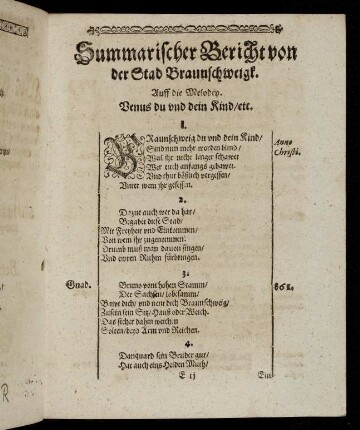 Summarischer Bericht von
der Stad Braunschweigk.
Auff die Melodey.
Venus du vnd dein Kind/ etc.
1.
BRaunschweig du vnd dein Kind/
Sind nun mehr worden blind/
Weil ihr nicht lenger schawet
Wer euch anfangs gebawet.
Vnd thut bößlich vergessen/
Vnter wem ihr gesessen.
Anno
Christi.
2.
Dazue auch wer da hat/
Begabet diese Stad/
Mit Freyheit vnd Einkommen/
Von wem ihr zugenommen.
Drumb muß man dauon singen/
Vnd ewren Ruhm fürbringen.
3.
Gnad.
Bruno vom hohen Stamm/
Der Sachsen/ lobesamm/
Bawt dich/ vnd nent dich Braunschweig/
Zu sein sein Sitz/ Hauß oder Weich.
Das sicher dahen
Solten/ beyd Arm vnd Reichen.
861.
4.
Danquard sein Bruder gut/
Hat auch eins Helden Muth/
E ij
Ein